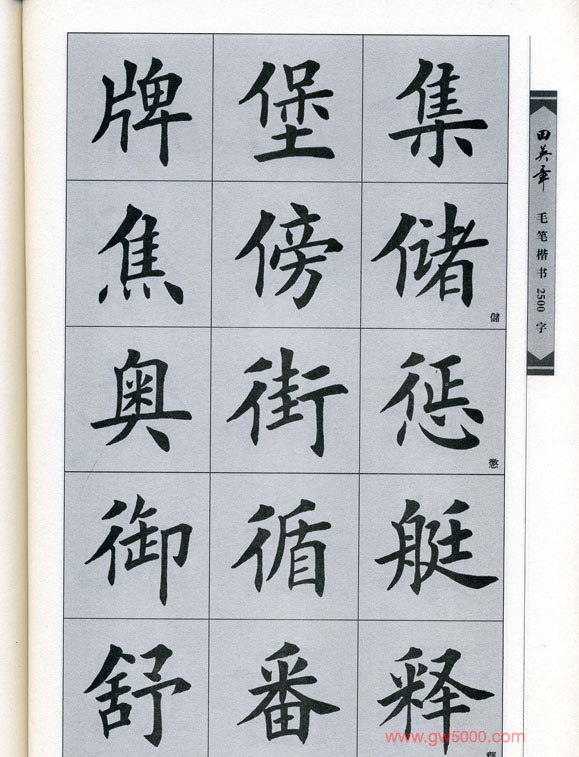 集 堡 牌
储 傍 焦
儲
惩 街 奥
懲
艇 循 御
释 番 舒
釋
田英章 毛笔楷书 2500 字
www.gw5000.com